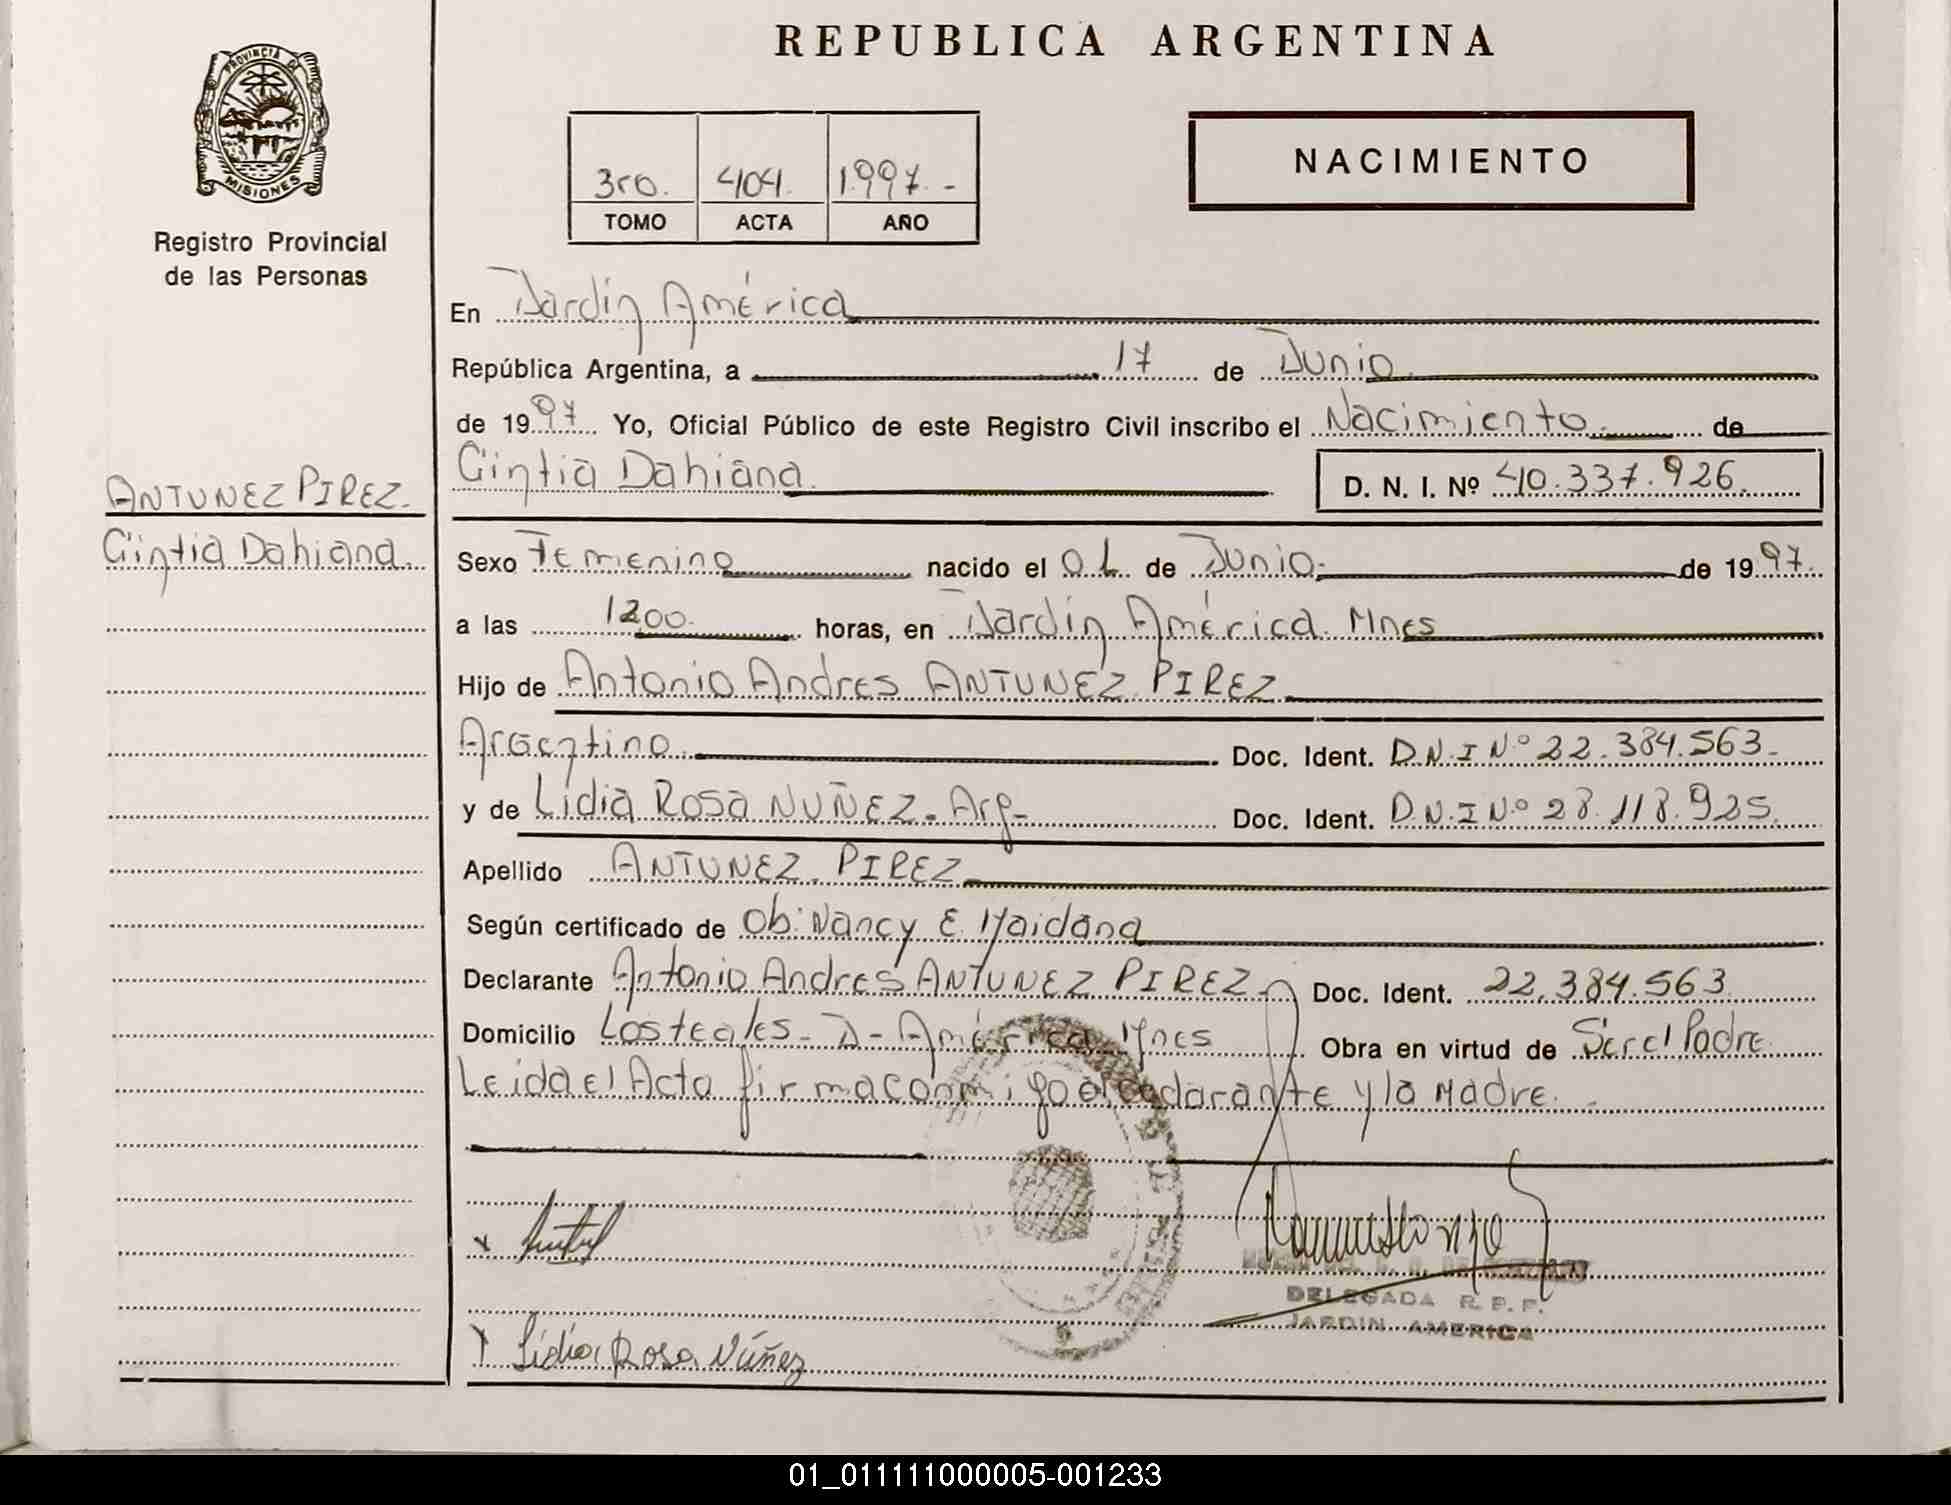 REPUBLICA ARGENTINA
PROVINCIA DE
MISIONES
Registro Provincial
de las Personas
3ro. 404. 1.997.-
TOMO ACTA AÑO
NACIMIENTO
En Jardín América
República Argentina, a 17 de Junio
de 1997 Yo, Oficial Público de este Registro Civil inscribo el Nacimiento. de
Cintia Dahiana. D. N. I. Nº 40.337.926.
ANTUNEZ PIREZ.
Cintia Dahiana.
Sexo Femenino nacido el 01. de Junio. de 1997.
a las 12,00. horas, en Jardín América. Mnes
Hijo de Antonio Andres ANTUNEZ PIREZ
Argentino. Doc. Ident. D.N.I Nº 22.384.563-
y de Lidia Rosa NUÑEZ. Arg- Doc. Ident. D.N.I Nº 28.118.925.
Apellido ANTUNEZ. PIREZ
Según certificado de Ob: Nancy E. Maidana
Declarante Antonio Andres ANTUNEZ PIREZ Doc. Ident. 22.384.563
Domicilio Los teales- J- América Mnes Obra en virtud de Ser el Padre
Leida el Acta firma conmigo el declarante y la Madre.
DELEGADA R. P. P.
JARDIN AMERICA
Lidia Rosa Núñez
01_011111000005-001233